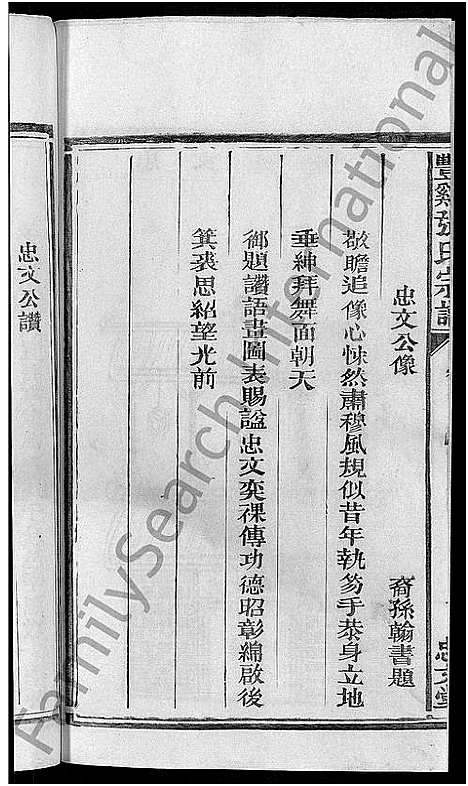 豐谿張氏宗譜
忠文堂
忠文公像 裔孫翰書題
敬瞻追像心悚然肅穆風規似昔年執笏手恭身立地
垂紳拜舞面朝天
御題讚語畫圖表賜謚忠文奕祼傳功德昭彰綿啟後
箕裘思紹望光前
忠文公讚
FamilySearch International